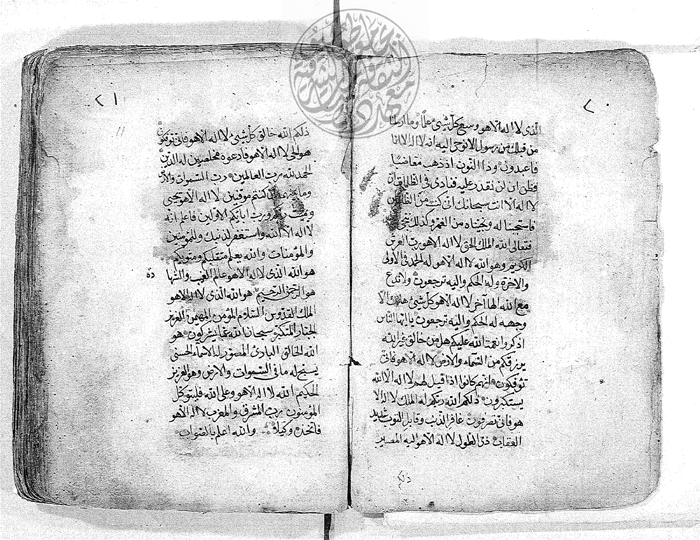 ٢٠
الذي لا اله الا هو وسع كل شئ علما وما ارسلنا
من قبلك من رسول الا نوحي اليه انه لا اله الا انا
فاعبدون وذا النون اذ ذهب مغاضبا
وظن ان لن نقدر عليه فنادى في الظلمات ان
لا اله الا انت سبحانك اني كنت من الظالمين
فاستجبنا له ونجيناه من الغم وكذلك ننجي
فتعالى الله الملك الحق لا اله الا هو رب العرش
الكريم وهو الله لا اله الا هو له الحمد في الاولى
والاخرة وله الحكم واليه ترجعون ولا تدع
مع الله الها اخر لا اله الا هو كل شئ هالك الا
وجهه له الحكم واليه ترجعون يا ايها الناس
اذكروا نعمة الله عليكم هل من خالق غير الله
يرزقكم من السماء والارض لا اله الا هو فانى
توفكون انهم كانوا اذا قيل لهم لا اله الا الله
يستكبرون ذلكم الله ربكم له الملك لا اله الا
هو فانى تصرفون غافر الذنب وقابل التوب شديد
العقاب ذي الطول لا اله الا هو اليه المصير
ذلكم
٢١
ذلكم الله خالق كل شئ لا اله الا هو فانى توفكون
هو الحي لا اله الا هو فادعوه مخلصين له الدين
الحمد لله رب العالمين رب السموات والارض
وما بينهما ان كنتم موقنين لا اله الا هو يحيي
ويميت ربكم ورب ابائكم الاولين فاعلم انه
لا اله الا الله واستغفر لذنبك وللمؤمنين
والمؤمنات والله يعلم متقلبكم ومثويكم
هو الله الذي لا اله الا هو عالم الغيب والشهادة
هو الرحمن الرحيم هو الله الذي لا اله الا هو
الملك القدوس السلام المؤمن المهيمن العزيز
الجبار المتكبر سبحان الله عما يشركون هو
الله الخالق البارئ المصور له الاسماء الحسنى
يسبح له ما في السموات والارض وهو العزيز
الحكيم الله لا اله الا هو وعلى الله فليتوكل
المؤمنون رب المشرق والمغرب لا اله الا هو
فاتخذه وكيلا والله اعلم بالصواب